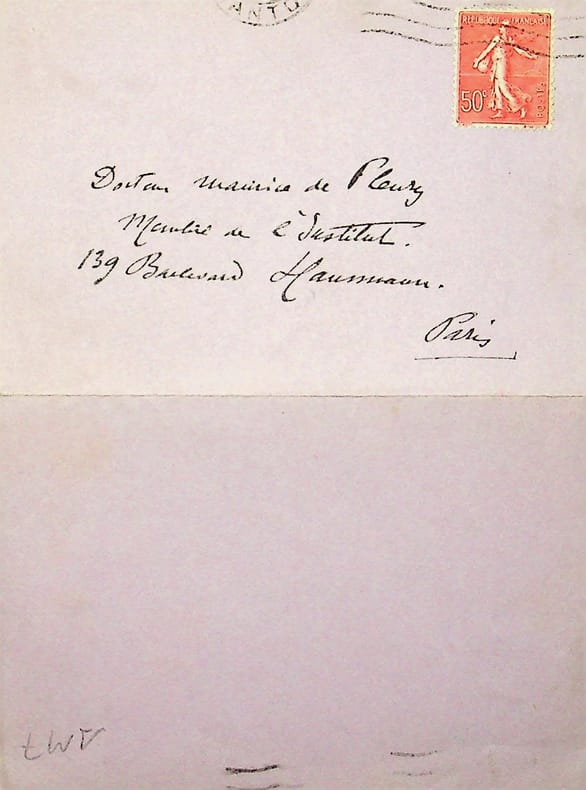 ANTU
RÉPUBLIQUE FRANÇAISE
50c
POSTES
Docteur Maurice de Fleury
Membre de l'Institut.
139 Boulevard Haussmann.
Paris